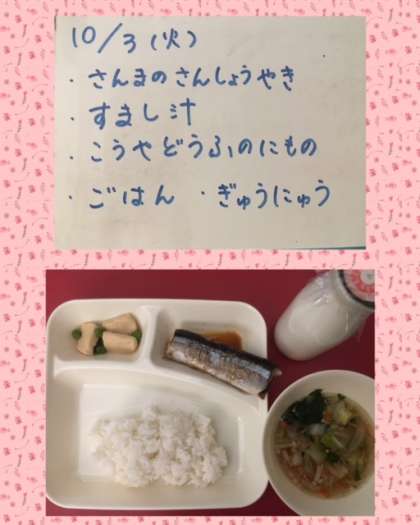 10/3(火)
・さんまのさんしょうやき
・すまし汁
・こうやどうふのにもの
・ごはん ・ぎゅうにゅう